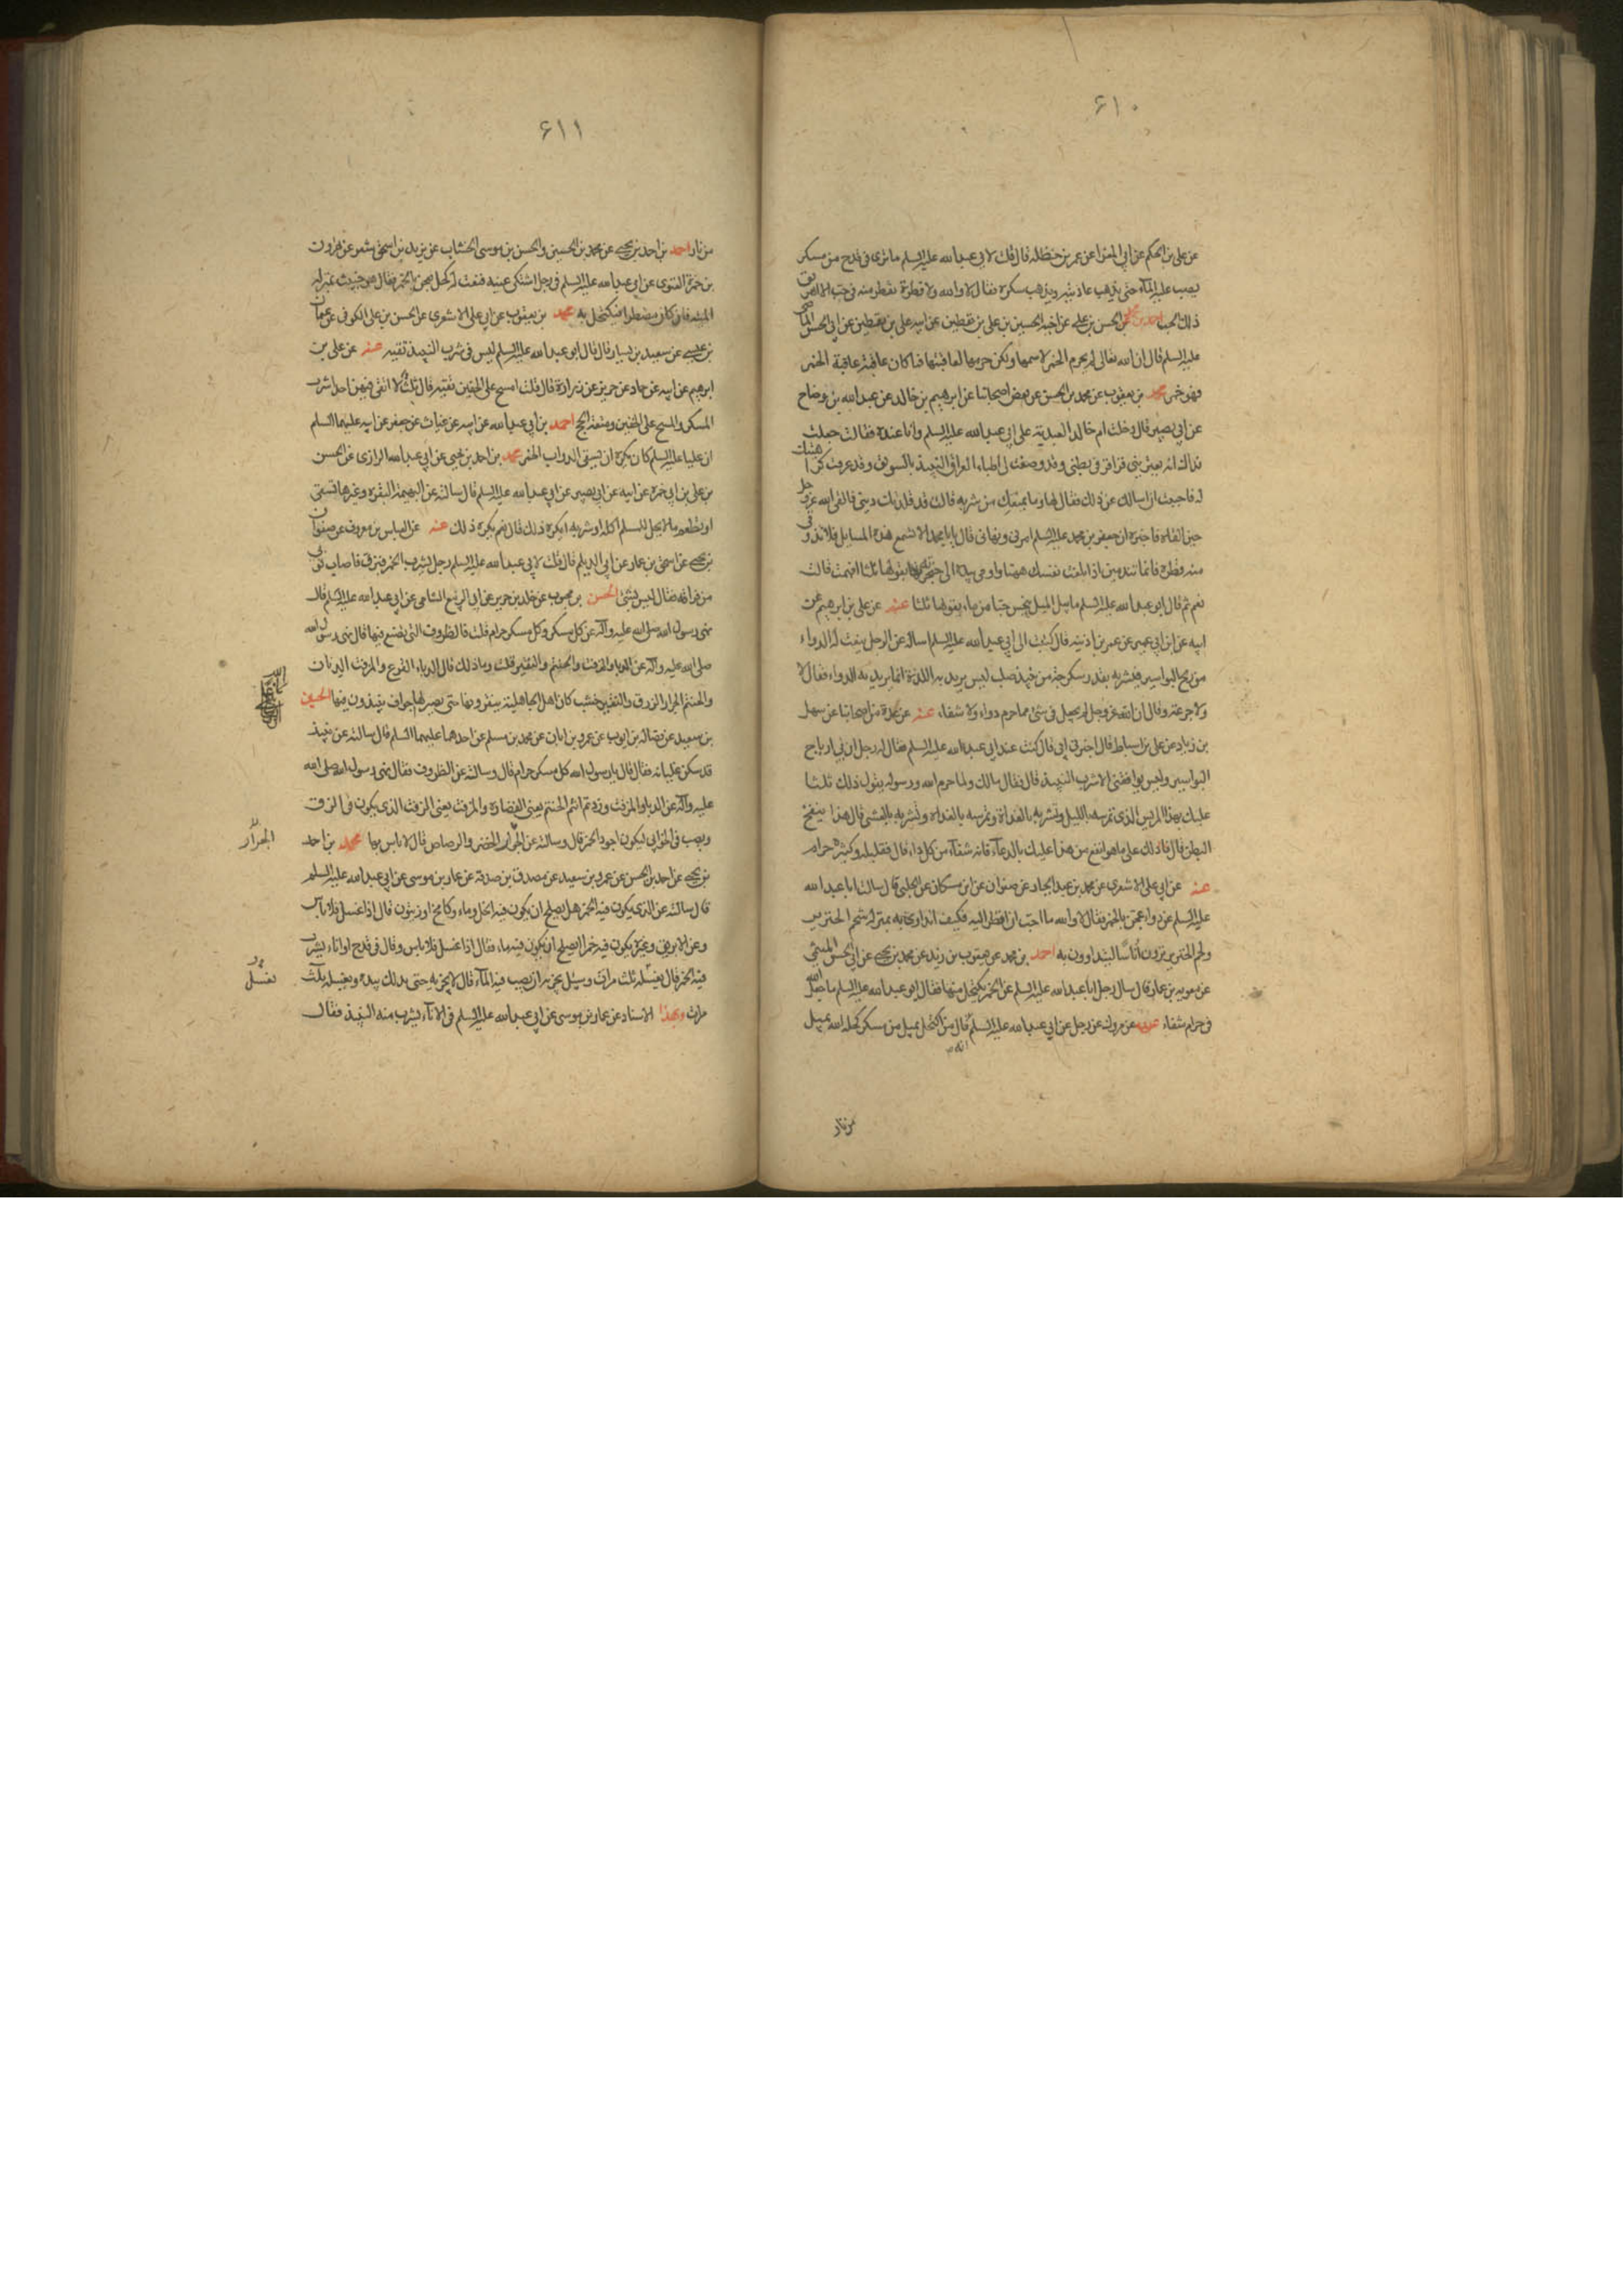 ۶۱۰
عن علی بن الحکم عن ابی المغرا عن عمر بن حنظله قال قلت لابی عبدالله علیه السلم ما تری فی قدح من مسکر
یصب علیه الماء حتی یذهب عادیته ویذهب سکره فقال لا والله ولا قطرة تقطر منه فی حب الا اهریق
ذلك الحب احمد بن محمد عن الحسن بن علی عن اخیه الحسین بن علی بن یقطین عن ابیه علی بن یقطین عن ابی الحسن الماضی
علیه السلم قال ان الله تعالی لم یحرم الخمر لاسمها ولکن حرمها لعاقبتها فما کان عاقبته عاقبة الخمر
فهو خمر محمد بن یعقوب عن محمد بن الحسن عن بعض اصحابنا عن ابرهیم بن خالد عن عبدالله بن وضاح
عن ابی بصیر قال دخلت ام خالد العبدیة علی ابی عبدالله علیه السلم وانا عنده فقالت جعلت
فداك انه یعترینی قراقر فی بطنی وقد وصفت لی اطباء العراق النبیذ بالسویق وقد عرفت کراهتك
له فاحببت ان اسالك عن ذلك فقال لها وما یمنعك من شربه قالت قد قلدتك دینی فالقی الله عزوجل
حین القاه فاخبره ان جعفر بن محمد علیه السلم امرنی ونهانی قال یا بامحمد الا تسمع هذه المسایل فلا تذوقی
منه قطرة فانما تندمین اذا بلغت نفسك ههنا واومی بیده الی حنجرته یقولها ثلثا افهمت قالت
نعم ثم قال ابو عبدالله علیه السلم ما یبل المیل ینجس حبا من ماء یقولها ثلثا عنه عن علی بن ابرهیم عن
ابیه عن ابن ابی عمیر عن عمر بن اذینه قال کتبت الی ابی عبدالله علیه السلم اساله عن الرجل ینعت له الدواء
من ریح البواسیر فیشربه بقدر سکرجة من نبیذ صلب لیس یرید به اللذة انما یرید به الدواء فقال لا
ولا جرعة وقال ان الله عزوجل لم یجعل فی شئ مما حرم دواء ولا شفاء عنه عن عدة من اصحابنا عن سهل
بن زیاد عن علی بن اسباط قال اخبرنی ابی قال کنت عند ابی عبدالله علیه السلم فقال له رجل ان بی ارباح
البواسیر ولیس یوافقنی الا شرب النبیذ قال فقال مالك ولما حرم الله ورسوله یقول ذلك ثلثا
علیك بهذا المریس الذی تمرسه باللیل وتشربه بالغداة وتمرسه بالغداة وتشربه بالعشی قال هذا ینفخ
البطن قال فادلك علی ما هو انفع من هذا علیك بالدعاء فانه شفاء من کل داء قال فقلیله وکثیره حرام
عنه عن ابی علی الاشعری عن محمد بن عبد الجبار عن صفوان عن ابن مسکان عن الحلبی قال سالت اباعبدالله
علیه السلم عن دواء عجن بالخمر فقال لا والله ما احب ان انظر الیه فکیف اتداوی به انه بمنزلة شحم الخنزیر
ولحم الخنزیر ترون اناسا لیتداوون به احمد بن محمد عن یعقوب بن یزید عن محمد بن یحیی عن ابی الحسن المیثمی
عن معویه بن عمار قال سال رجل اباعبدالله علیه السلم عن الخمر یکتحل منها فقال ابو عبدالله علیه السلم ما جعل الله
فی حرام شفاء عنه عن مروك عن رجل عن ابی عبدالله علیه السلم قال من اکتحل بمیل من مسکر کحله الله بمیل
من نار
۶۱۱
من نار احمد بن احمد بن یحیی عن محمد بن الحسین والحسن بن موسی الخشاب عن یزید بن اسحق شعر عن هرون
بن حمزة الغنوی عن ابی عبدالله علیه السلم فی رجل اشتکی عینه فنعت له کحل یعجن بالخمر فقال هو خبیث بمنزلة
المیته فان کان مضطرا فیکتحل به محمد بن یعقوب عن ابی علی الاشعری عن الحسن بن علی الکوفی عن عثمان
بن عیسی عن سعید بن یسار قال قال ابو عبدالله علیه السلم لیس فی شرب النبیذ تقیه عنه عن علی بن
ابرهیم عن ابیه عن حماد عن حریز عن زرارة قال قلت امسح علی الخفین تقیه قال ثلث لا اتقی فیهن احدا شرب
المسکر والمسح علی الخفین ومتعة الحج احمد بن ابی عبدالله عن ابیه عن غیاث عن جعفر عن ابیه علیهما السلم
ان علیا علیه السلم کان یکره ان یسقی الدواب الخمر محمد بن احمد بن یحیی عن ابی عبدالله الرازی عن الحسن
بن علی بن ابی حمزه عن ابیه عن ابی بصیر عن ابی عبدالله علیه السلم قال سالته عن البهیمة البقرة وغیرها تسقی
او تطعم ما لا یحل للمسلم اکله او شربه ایکره ذلك قال نعم یکره ذلك عنه عن العباس بن معروف عن صفوان
بن یحیی عن اسحق بن عمار عن ابی الدیلم قال قلت لابی عبدالله علیه السلم رجل یشرب الخمر فیبزق فاصاب ثوبی
من بزاقه فقال لیس بشئ الحسن بن محبوب عن خلد بن جریر عن ابی الربیع الشامی عن ابی عبدالله علیه السلم قال
نهی رسول الله صلی الله علیه وآله عن کل مسکر وکل مسکر حرام قلت فالظروف التی یصنع فیها قال نهی رسول الله
صلی الله علیه وآله عن الدبا والمزفت والحنتم والنقیر قلت وما ذلك قال الدباء القرع والمزفت الدنان
والحنتم الجرار الزرق والنقیر خشب کان اهل الجاهلیة ینقرونها حتی یصیر لها اجواف ینبذون فیها الحسین
بن سعید عن فضاله بن ایوب عن عمر بن ابان عن محمد بن مسلم عن احدهما علیهما السلم قال سالته عن نبیذ
قد سکن غلیانه فقال قال رسول الله کل مسکر حرام قال وسالته عن الظروف فقال نهی رسول الله صلی الله
علیه وآله عن الدبا والمزفت وزدتم انتم الحنتم یعنی الغضارة والمزفت یعنی الزفت الذی یکون فی الزق
ویصب فی الخوابی لیکون اجود للخمر قال وسالته عن الجرار الخضر والرصاص قال لا باس بها محمد بن احمد
الجرار
بن یحیی عن احمد بن الحسن عن عمرو بن سعید عن مصدق بن صدقة عن عمار بن موسی عن ابی عبدالله علیه السلم
قال سالته عن الدن یکون فیه الخمر هل یصلح ان یکون فیه الخل وماء وکامخ او زیتون قال اذا غسل فلا باس
وعن الابریق وغیره یکون فیه خمر ایصلح ان یکون فیه ماء فقال اذا غسل فلا باس وقال فی قدح او اناء یشرب
فیه الخمر قال یغسله ثلث مرات وسئل یجزیه ان یصب فیه الماء قال لا یجزیه حتی یدلك بیده ویغسله ثلث
تغسله
مرات وبهذا الاسناد عن عمار بن موسی عن ابی عبدالله علیه السلم فی الاناء یشرب منه النبیذ فقال